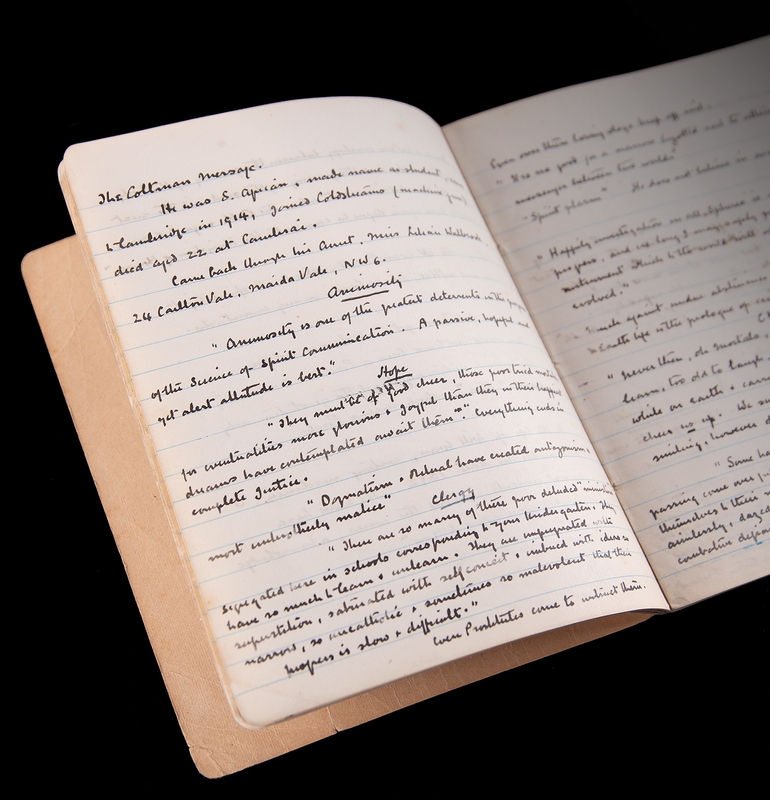 The Coltman Message.
He was S. African, made name as student,
to Cambridge in 1914, joined Coldstreams (machine gun)
died aged 22. at Cambrai.
Came back through his Aunt, Miss Lilian Walbrook,
24 Carlton Vale, Maida Vale, N.W 6.
Animosity
" Animosity is one of the greatest deterrents in the
of the Science of Spirit Communication. A passive, hopeful and
yet alert attitude is best."
Hope
" They must be of good cheer, those poor tried
for eventualities more glorious & Joyful than they in their happiest
dreams have contemplated await them." "Everything ends in
complete Justice.
" Dogmatism & Ritual have created antagonism,
most unchristlike malice"
Clergy
" There are so many of these poor deluded
segregated here in schools corresponding to your Kindergarten. They
have so much to learn & unlearn. They are impregnated with
superstition, saturated with self conceit & imbued with ideas so
narrow, so uncatholic & sometimes so malevolent that their
progress is slow & difficult."
Even Prostitutes come to instruct them.
Even over them having dogs keep off
" It is no good for a
messenger between two worlds"
"Spirit plasm" He does not believe in
" Happily investigation
progress, and ere long I may
instrument which to the world will
evolved."
Much against undue abstinence
Earth life is the prologue of
" Never then, oh mortals,
learn, too old to laugh
while on earth &
cheer us up. We
smiling, however
" Some
passing come over
themselves to their
aimlessly, dazed
combative